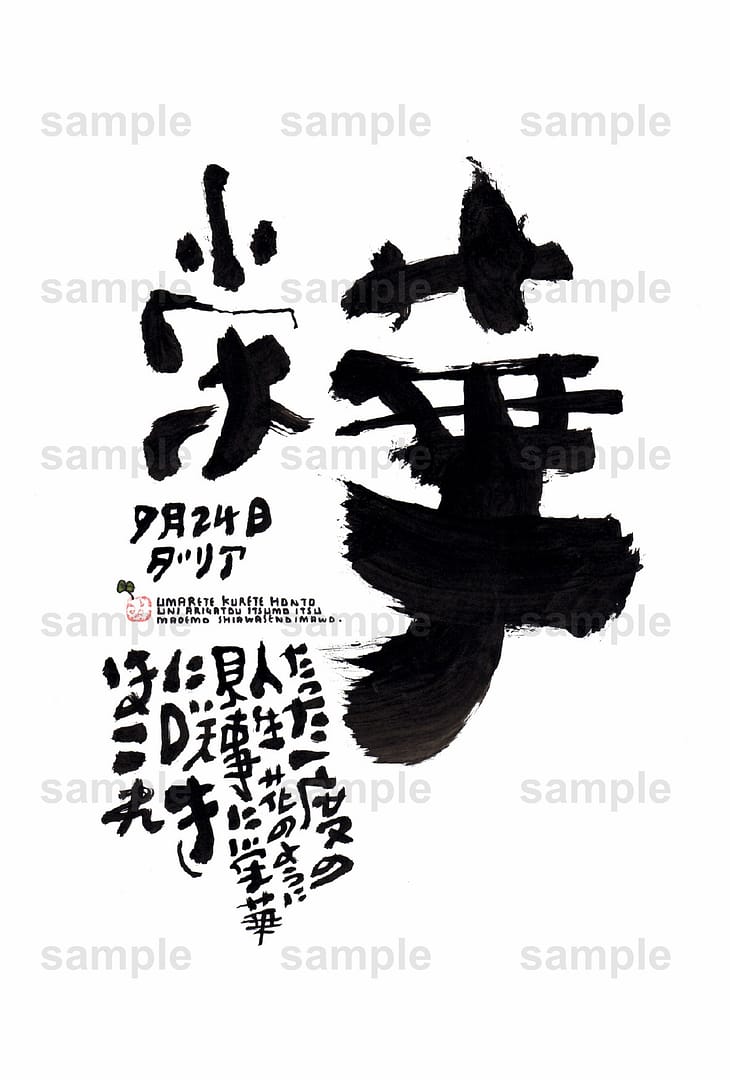 sample sample sample
栄華
sample sample sample
sample sample sample
9月24日
ダリア
UMARETE KURETE HONTO
UNI ARIGATOU ITSUMO ITSU
MADEMO SHIAWASENOIMAWO.
sample sample sample
たった一度の
人生花のように
見事に栄華
に咲き
ほこれ
sample sample sample
sample sample sample